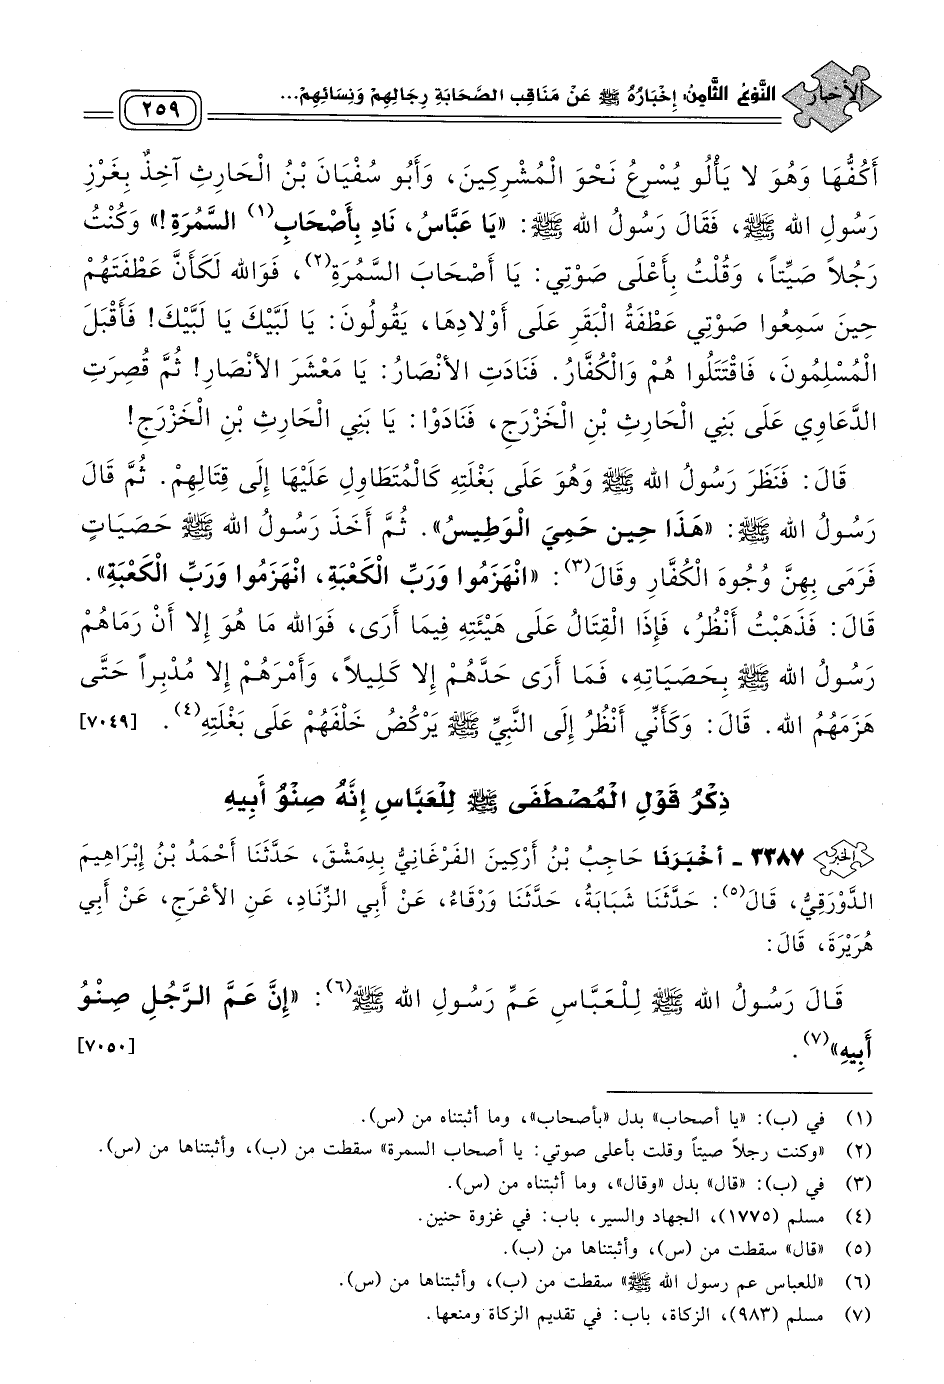 الأخبار النَّوْعُ الثَّامِنُ: إِخْبَارُهُ ﷺ عَنْ مَنَاقِبِ الصَّحَابَةِ رِجَالِهِمْ وَنِسَائِهِمْ...
٢٥٩
أَكُفُّهَا وَهُوَ لا يَأْلُو يُسْرِعُ نَحْوَ الْمُشْرِكِينَ، وَأَبُو سُفْيَانَ بْنُ الْحَارِثِ آخِذٌ بِغَرْزِ
رَسُولِ الله ﷺ، فَقَالَ رَسُولُ الله ﷺ: «يَا عَبَّاسُ، نَادِ بِأَصْحَابِ(١) السَّمُرَةِ!» وَكُنْتُ
رَجُلاً صَيِّتاً، وَقُلْتُ بِأَعْلَى صَوْتِي: يَا أَصْحَابَ السَّمُرَةِ(٢)، فَوَالله لَكَأَنَّ عَطْفَتَهُمْ
حِينَ سَمِعُوا صَوْتِي عَطْفَةُ الْبَقَرِ عَلَى أَوْلادِهَا، يَقُولُونَ: يَا لَبَّيْكَ يَا لَبَّيْكَ! فَأَقْبَلَ
الْمُسْلِمُونَ، فَاقْتَتَلُوا هُمْ وَالْكُفَّارُ. فَنَادَتِ الأَنْصَارُ: يَا مَعْشَرَ الأَنْصَارِ! ثُمَّ قُصِرَتِ
الدَّعَاوِي عَلَى بَنِي الْحَارِثِ بْنِ الْخَزْرَجِ، فَنَادَوْا: يَا بَنِي الْحَارِثِ بْنِ الْخَزْرَجِ!
قَالَ: فَنَظَرَ رَسُولُ الله ﷺ وَهُوَ عَلَى بَغْلَتِهِ كَالْمُتَطَاوِلِ عَلَيْهَا إِلَى قِتَالِهِمْ. ثُمَّ قَالَ
رَسُولُ الله ﷺ: «هَذَا حِين حَمِيَ الْوَطِيسُ». ثُمَّ أَخَذَ رَسُولُ الله ﷺ حَصَيَاتٍ
فَرَمَى بِهِنَّ وُجُوهَ الْكُفَّارِ وقَالَ(٣): «انْهَزَمُوا وَرَبِّ الْكَعْبَةِ، انْهَزَمُوا وَرَبِّ الْكَعْبَةِ».
قَالَ: فَذَهَبْتُ أَنْظُرُ، فَإِذَا الْقِتَالُ عَلَى هَيْئَتِهِ فِيمَا أَرَى، فَوَالله مَا هُوَ إِلا أَنْ رَمَاهُمْ
رَسُولُ الله ﷺ بِحَصَيَاتِهِ، فَمَا أَرَى حَدَّهُمْ إِلا كَلِيلاً، وَأَمْرَهُمْ إِلا مُدْبِراً حَتَّى
هَزَمَهُمُ الله. قَالَ: وَكَأَنِّي أَنْظُرُ إِلَى النَّبِيِّ ﷺ يَرْكُضُ خَلْفَهُمْ عَلَى بَغْلَتِهِ(٤). [٧٠٤٩]
ذِكْرُ قَوْلِ الْمُصْطَفَى ﷺ لِلْعَبَّاسِ إِنَّهُ صِنْوُ أَبِيهِ
الخبر ٣٣٨٧ - أخْبَرَنَا حَاجِبُ بْنُ أَرْكِينَ الفَرْغَانِيُّ بِدِمَشْقَ، حَدَّثَنَا أَحْمَدُ بْنُ إِبْرَاهِيمَ
الدَّوْرَقِيُّ، قَالَ(٥): حَدَّثَنَا شَبَابَةُ، حَدَّثَنَا وَرْقَاءُ، عَنْ أَبِي الزِّنَادِ، عَنِ الأَعْرَجِ، عَنْ أَبِي
هُرَيْرَةَ، قَالَ:
قَالَ رَسُولُ الله ﷺ لِلْعَبَّاسِ عَمِّ رَسُولِ الله ﷺ(٦): «إِنَّ عَمَّ الرَّجُلِ صِنْوُ
أَبِيهِ»(٧). [٧٠٥٠]
(١) في (ب): «يا أصحاب» بدل «بأصحاب»، وما أثبتناه من (س).
(٢) «وكنت رجلاً صيتاً وقلت بأعلى صوتي: يا أصحاب السمرة» سقطت من (ب)، وأثبتناها من (س).
(٣) في (ب): «قال» بدل «وقال»، وما أثبتناه من (س).
(٤) مسلم (١٧٧٥)، الجهاد والسير، باب: في غزوة حنين.
(٥) «قال» سقطت من (س)، وأثبتناها من (ب).
(٦) «للعباس عم رسول الله ﷺ» سقطت من (ب)، وأثبتناها من (س).
(٧) مسلم (٩٨٣)، الزكاة، باب: في تقديم الزكاة ومنعها.